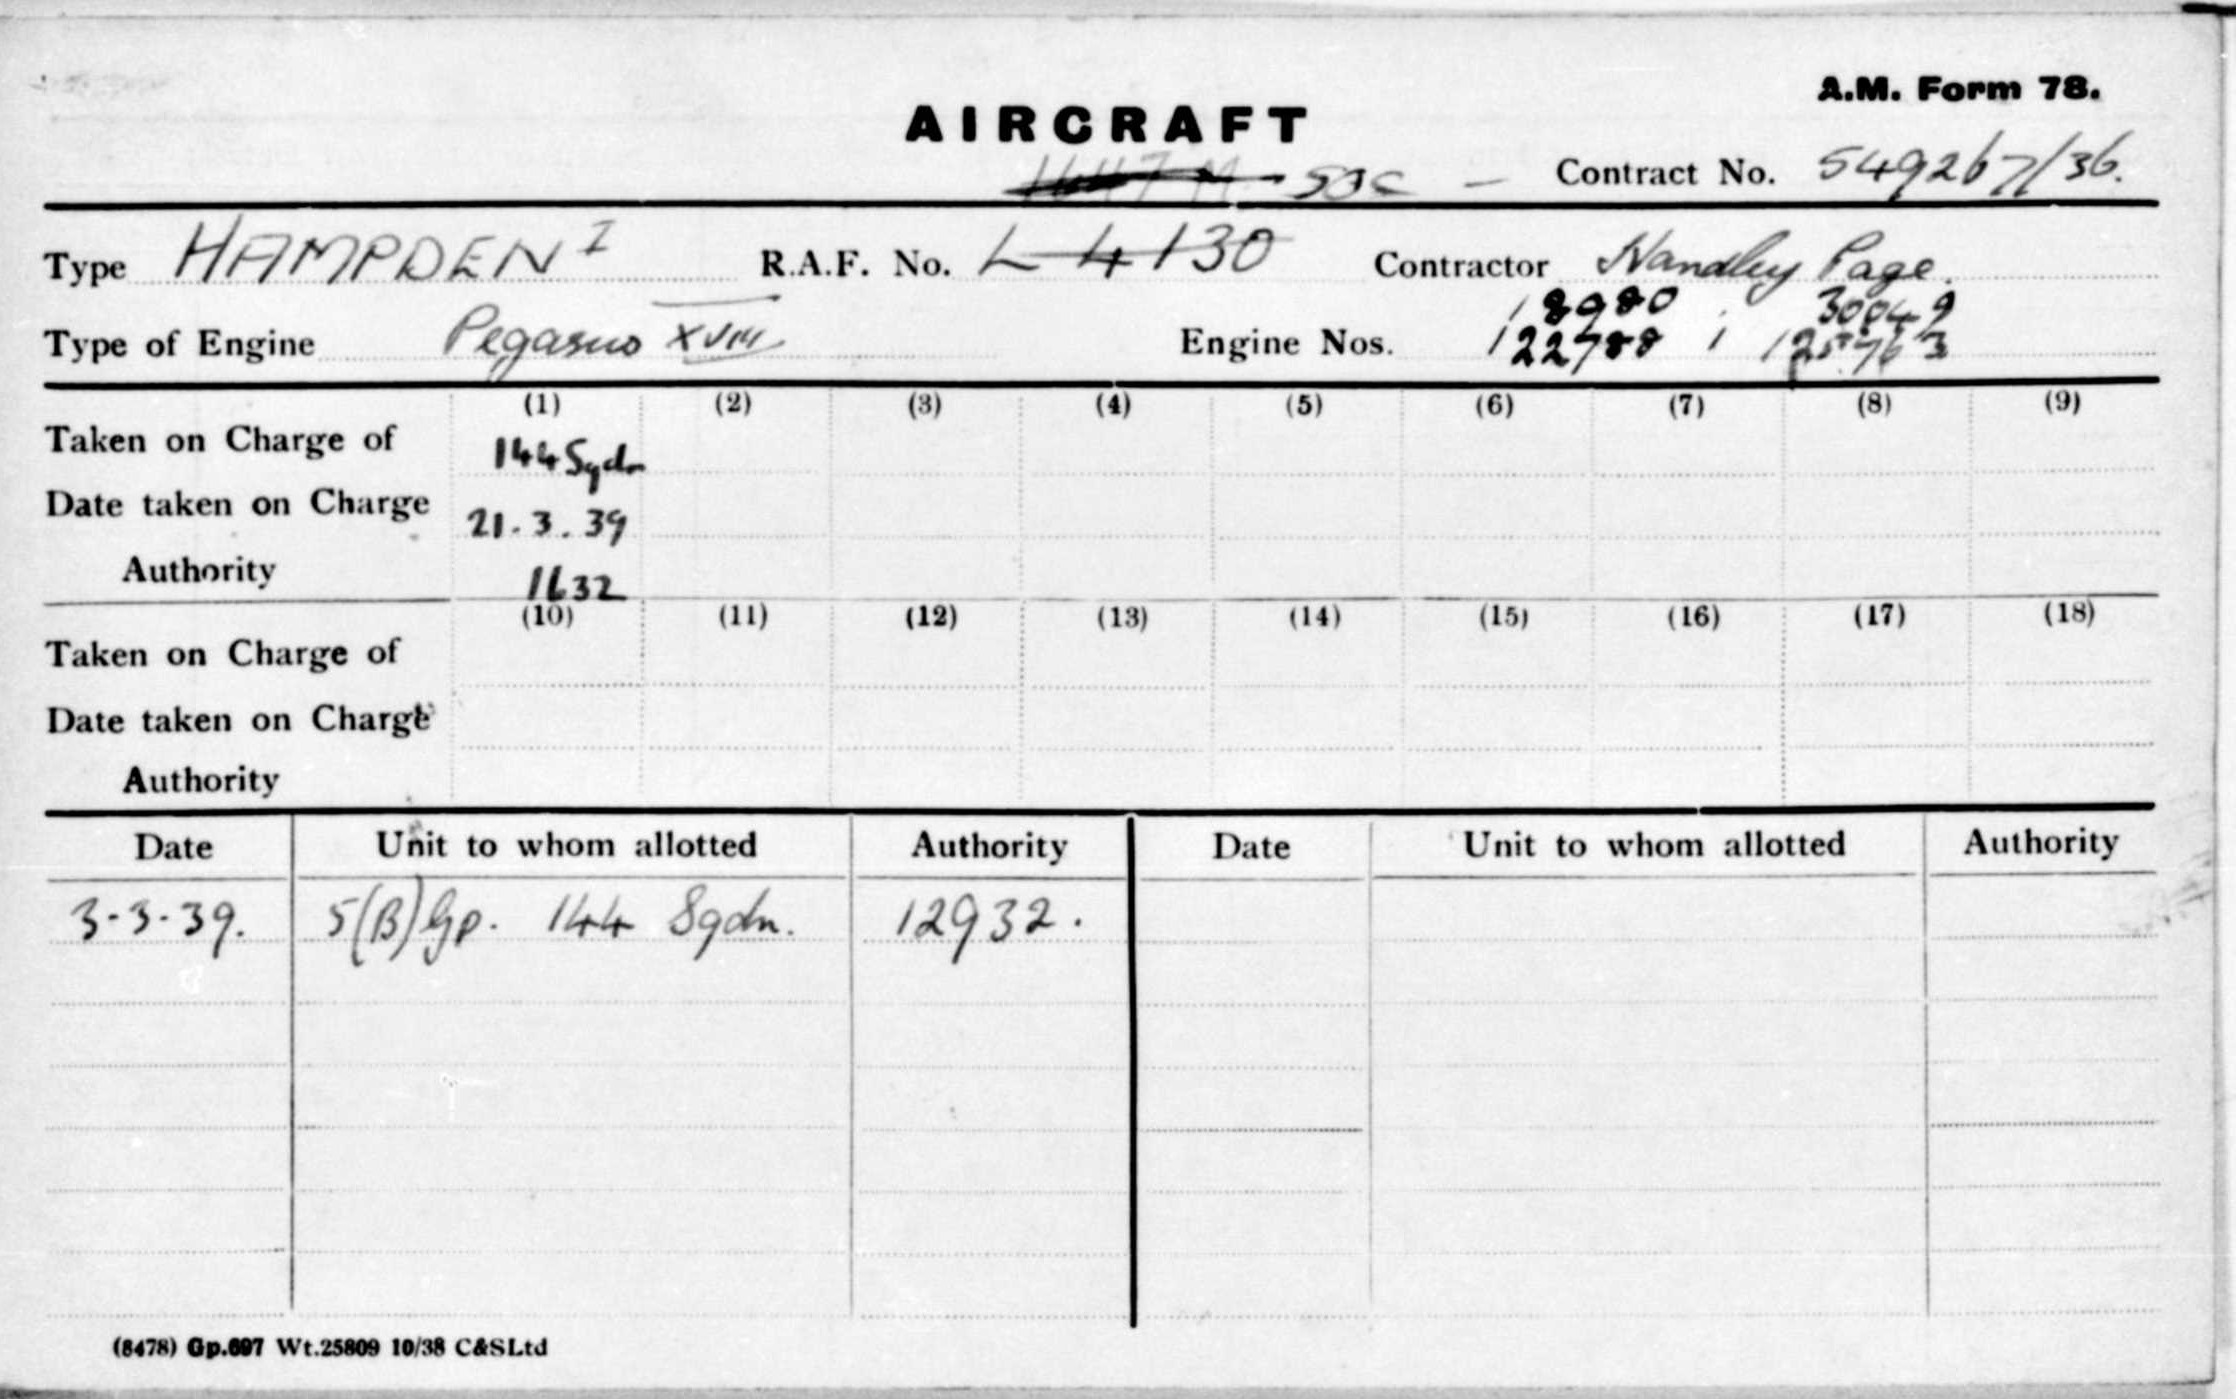 A.M. Form 78.
AIRCRAFT
SOC - Contract No. 549267/36.
Type HAMPDEN I R.A.F. No. L 4130 Contractor Handley Page.
18980 ; 30049
Type of Engine Pegasus XVIII Engine Nos. 122788 ;
(1) (2) (3) (4) (5) (6) (7) (8) (9)
Taken on Charge of 144 Sqdn
Date taken on Charge 21.3.39
Authority 1632
(10) (11) (12) (13) (14) (15) (16) (17) (18)
Taken on Charge of
Date taken on Charge
Authority
Date Unit to whom allotted Authority Date Unit to whom allotted Authority
3-3-39. 5(B)Gp. 144 Sqdn. 12932.
(8478) Gp.697 Wt.25809 10/38 C&SLtd